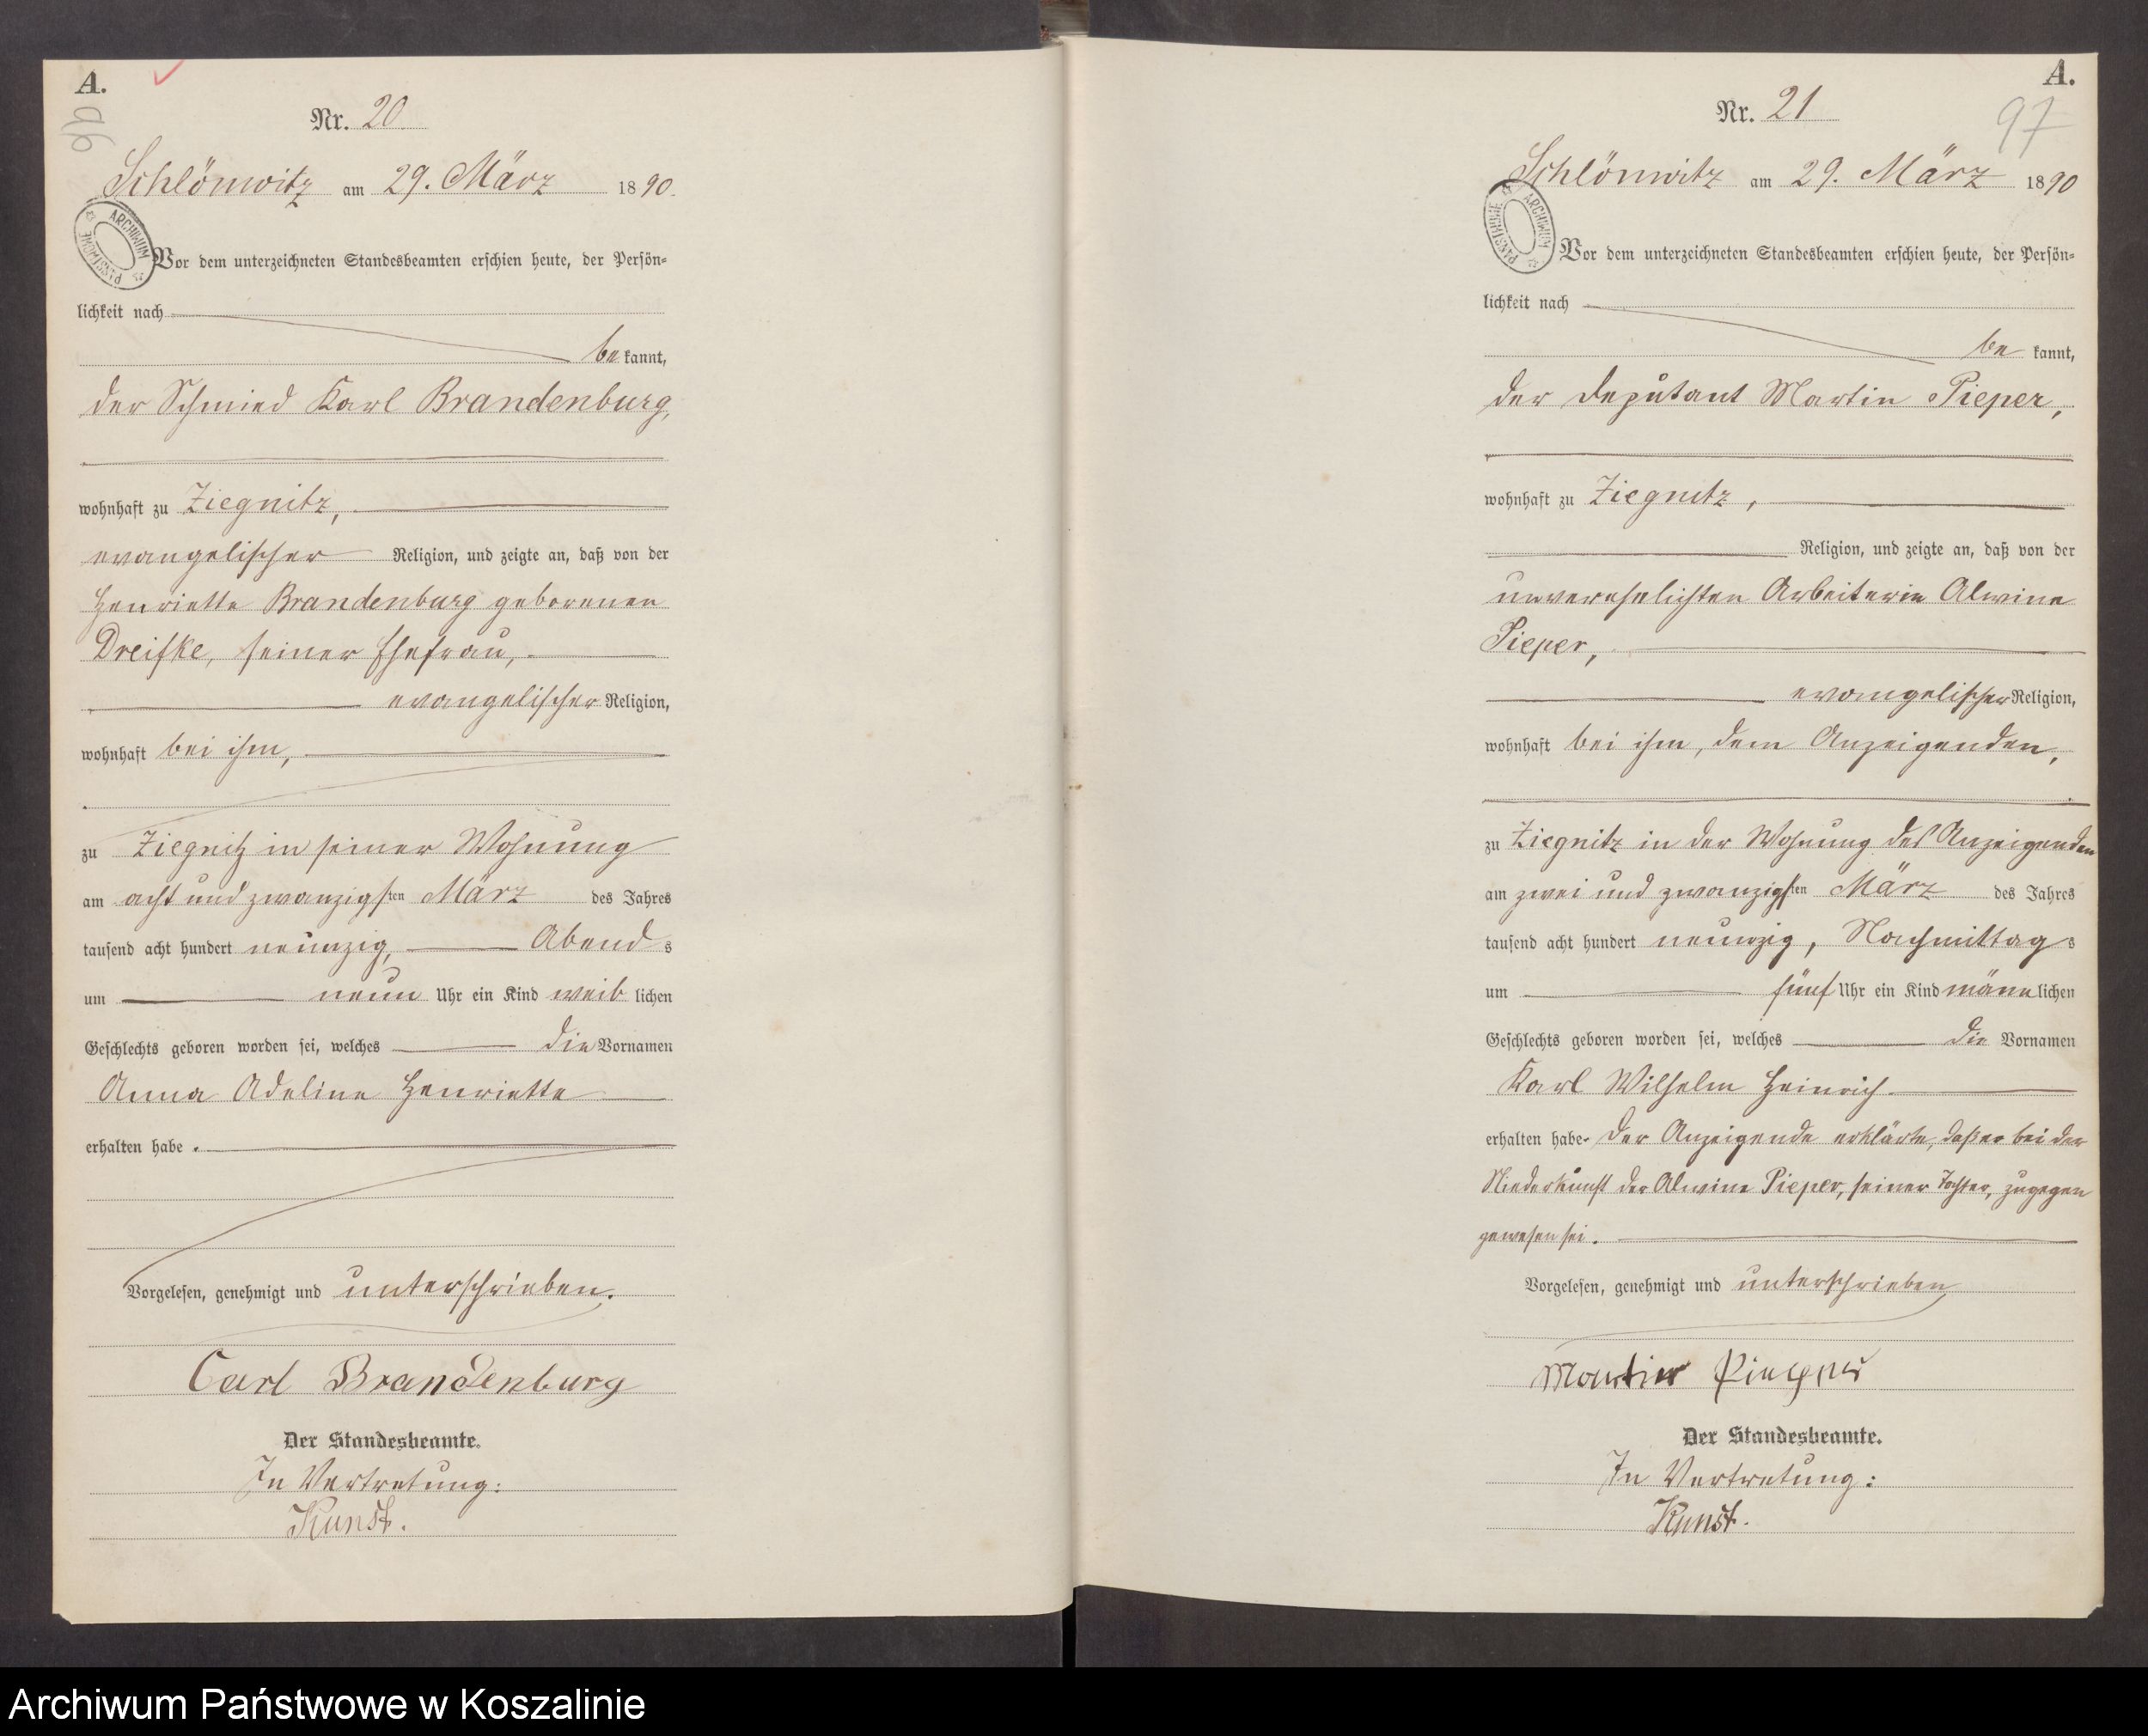 A.
96
Nr. 20
Schlönwitz am 29. März 1890.
ARCHIWUM PAŃSTWOWE
Vor dem unterzeichneten Standesbeamten erschien heute, der Persön-
lichkeit nach
bekannt,
der Schmied Karl Brandenburg,
wohnhaft zu Ziegnitz,
evangelischer Religion, und zeigte an, daß von der
Henriette Brandenburg geborenen
Dreifke, seiner Ehefrau,
evangelischer Religion,
wohnhaft bei ihm,
zu Ziegnitz in seiner Wohnung
am acht und zwanzigsten März des Jahres
tausend acht hundert neunzig, Abends
um neun Uhr ein Kind weiblichen
Geschlechts geboren worden sei, welches die Vornamen
Anna Adeline Henriette
erhalten habe.
Vorgelesen, genehmigt und unterschrieben.
Carl Brandenburg
Der Standesbeamte.
In Vertretung:
Kunst.
A.
97
Nr. 21
Schlönwitz am 29. März 1890
ARCHIWUM PAŃSTWOWE
Vor dem unterzeichneten Standesbeamten erschien heute, der Persön-
lichkeit nach
bekannt,
der Deputant Martin Pieper,
wohnhaft zu Ziegnitz,
Religion, und zeigte an, daß von der
unverehelichten Arbeiterin Alwine
Pieper,
evangelischer Religion,
wohnhaft bei ihm, dem Anzeigenden,
zu Ziegnitz in der Wohnung des Anzeigenden
am zwei und zwanzigsten März des Jahres
tausend acht hundert neunzig, Nachmittags
um fünf Uhr ein Kind männlichen
Geschlechts geboren worden sei, welches die Vornamen
Karl Wilhelm Heinrich
erhalten habe. Der Anzeigende erklärte, daß er bei der
Niederkunft der Alwine Pieper, seiner Tochter, zugegen
gewesen sei.
Vorgelesen, genehmigt und unterschrieben
Martin Pieper
Der Standesbeamte.
In Vertretung:
Kunst.
Archiwum Państwowe w Koszalinie